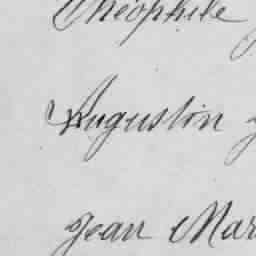 Théophile
Augustin
Jean Mar